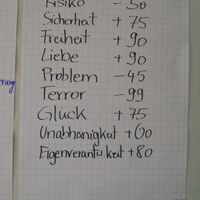 Risiko - 50
Sicherheit + 75
Freiheit + 90
Liebe + 90
Problem - 45
Terror - 99
Glück + 75
Unabhänigkut +60
Eigenverantw.kut +80